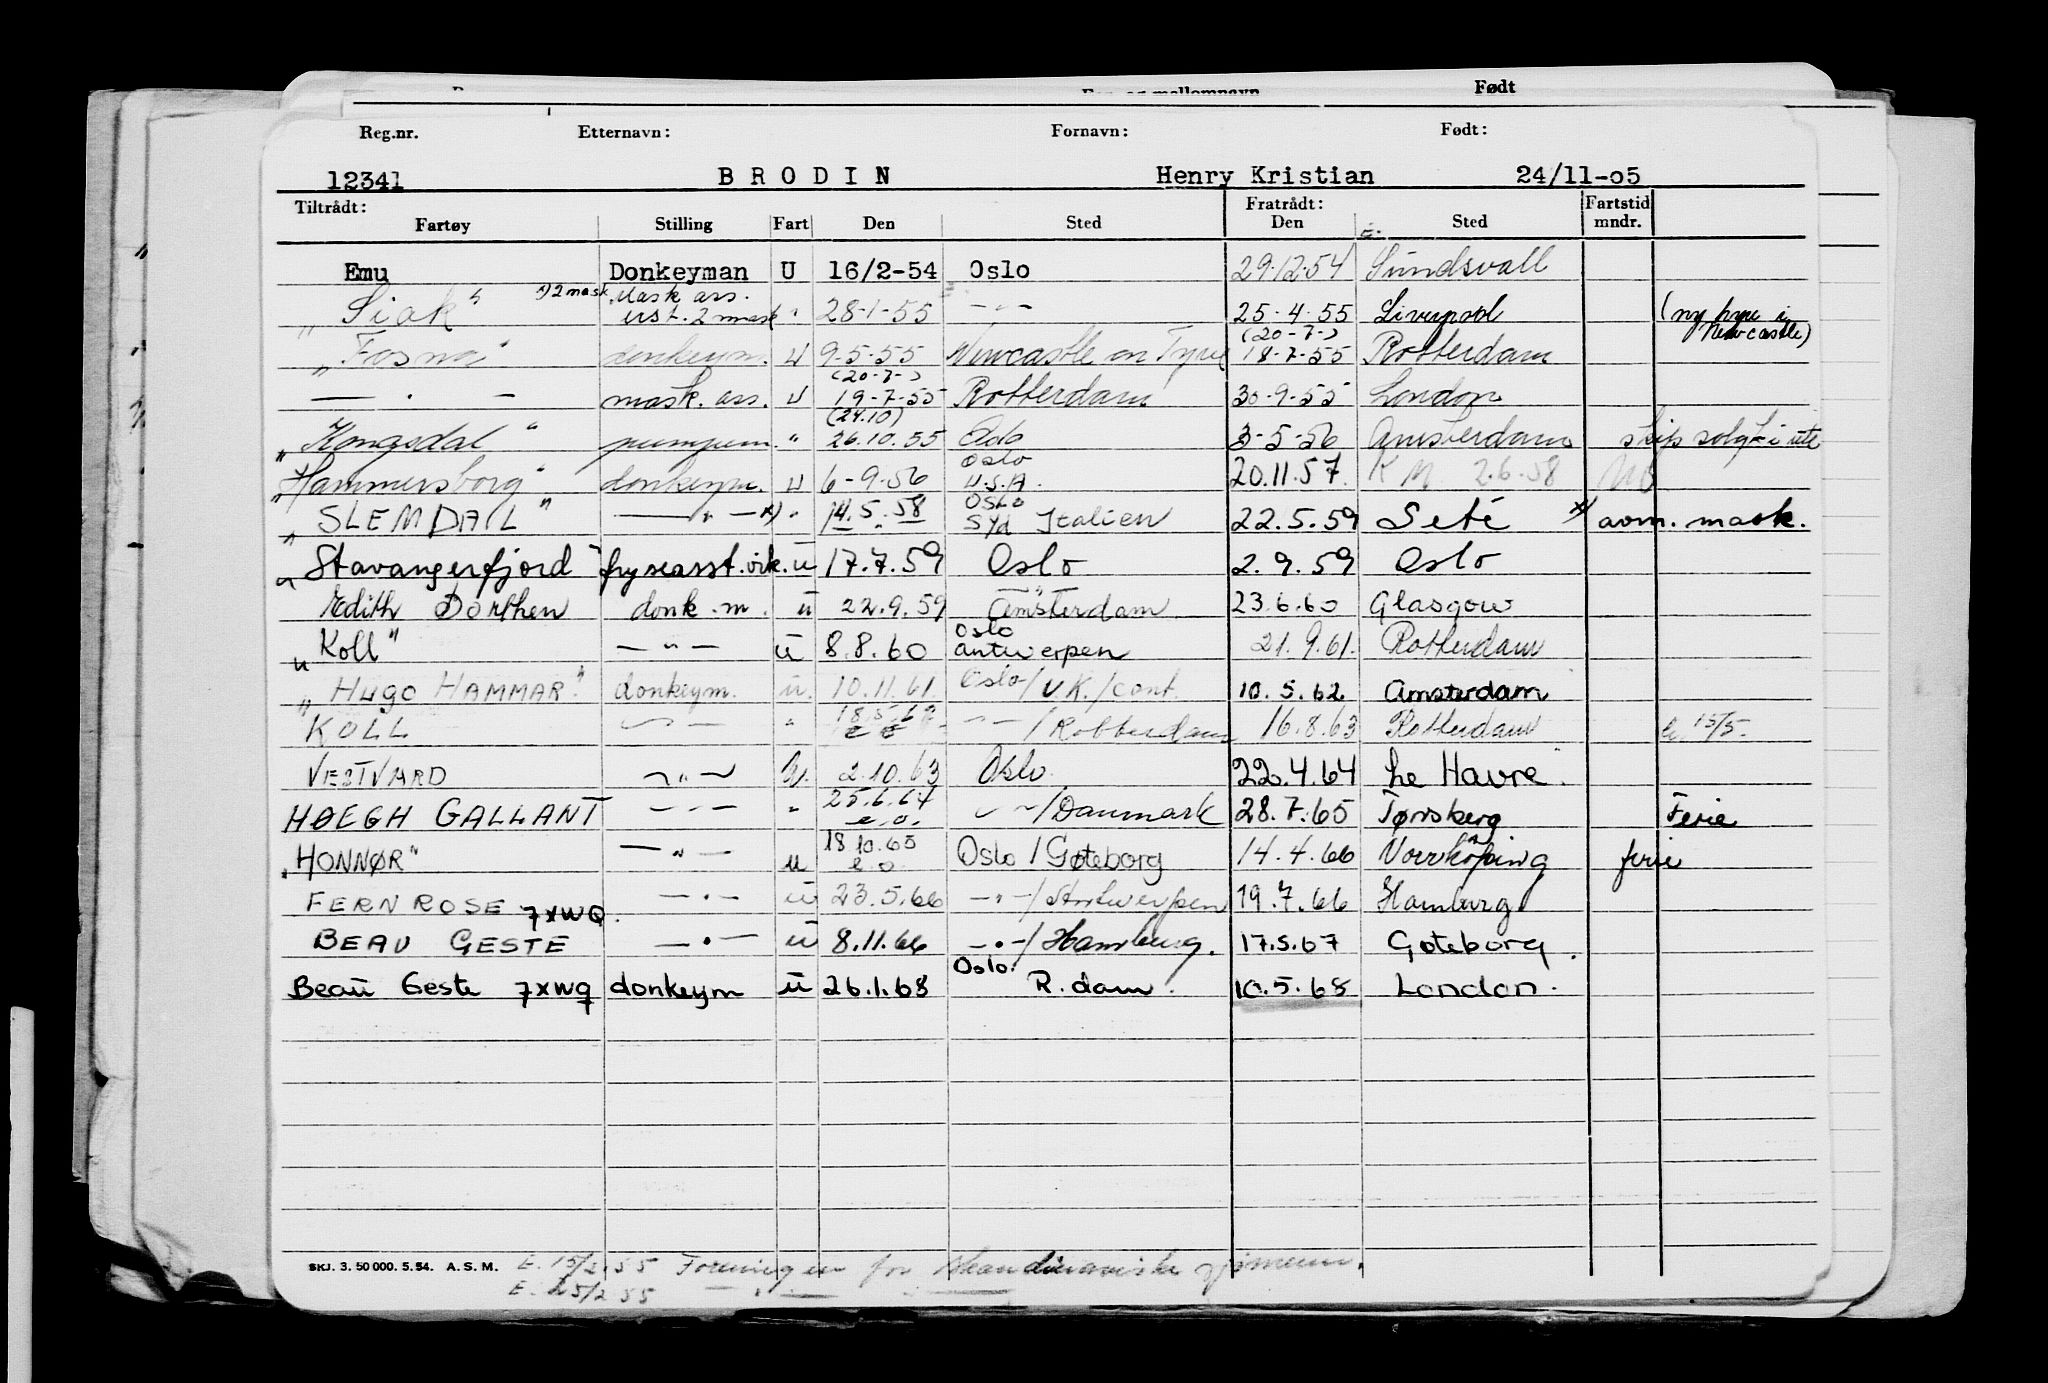 Født
Reg.nr. Etternavn: Fornavn: Født:
12341 BRODIN Henry Kristian 24/11-05
Tiltrådt: Fratrådt: Fartstid
Fartøy Stilling Fart Den Sted Den Sted mndr.
Emu Donkeyman U 16/2-54 Oslo 29-12-54 Sundsvall
"Siak" x) 2 mask. Mask ass. urst. 2 mask " 28-1-55 — " — 25-4-55 Liverpool (ny hyre i Newcastle)
"Fosna" donkeym. U 9-5-55 Newcastle on Tyne (20-7-) 18-7-55 Rotterdam
— . — mask. ass. U (20-7-) 19-7-55 Rotterdam 30-9-55 London
"Kongsdal" pumpem. " (24.10) 26.10.55 Oslo 3-5-56 Amsterdam skip solgt i ute
"Hammersborg" donkeym. U 6-9-56 Oslo U.S.A. 20.11.57. K M 2.6.58
"SLEMDAL" — " — x) " 14.5.58 Oslo Syd Italien 22.5.59 Seté x) avm. mask.
"Stavangerfjord" fryseasst.vik. u 17.7.59 Oslo 2.9.59 Oslo
Edith Dorthen donk.m. u 22.9.59 — " — Amsterdam 23.6.60 Glasgow
"Koll" — " — u 8.8.60 Oslo Antwerpen 21.9.61. Rotterdam
"HUGO HAMMAR" donkeym. u. 10.11.61. Oslo/U.K./cont. 10.5.62 Amsterdam
KOLL — " — " 18.5.62 — " — /Rotterdam 16.8.63 Rotterdam 15/5.
VESTVARD — " — U. 2.10.63 Oslo. 22.4.64 Le Havre.
HØEGH GALLANT — " — " 25.6.64 e.o. — " — /Danmark 28.7.65 Tønsberg Ferie
"HONNØR" — " — u 18.10.65 e.o. Oslo / Gøteborg 14.4.66 Norrkøping ferie
FERNROSE — " — u 23.5.66 — " — /Antwerpen 19.7.66 Hamburg
7XWQ.
BEAU GESTE — " — u 8.11.66 — " — /Hamburg. 17.5.67 Gøteborg.
Beau Geste 7XWQ donkeym u 26.1.68 Oslo. R.dam. 10.5.68 London.
SKJ. 3. 50 000. 5. 54. A. S. M. E. 15/2.55 Foreningen for skandinaviske sjømenn.
E. 25/2 55 — " — " —